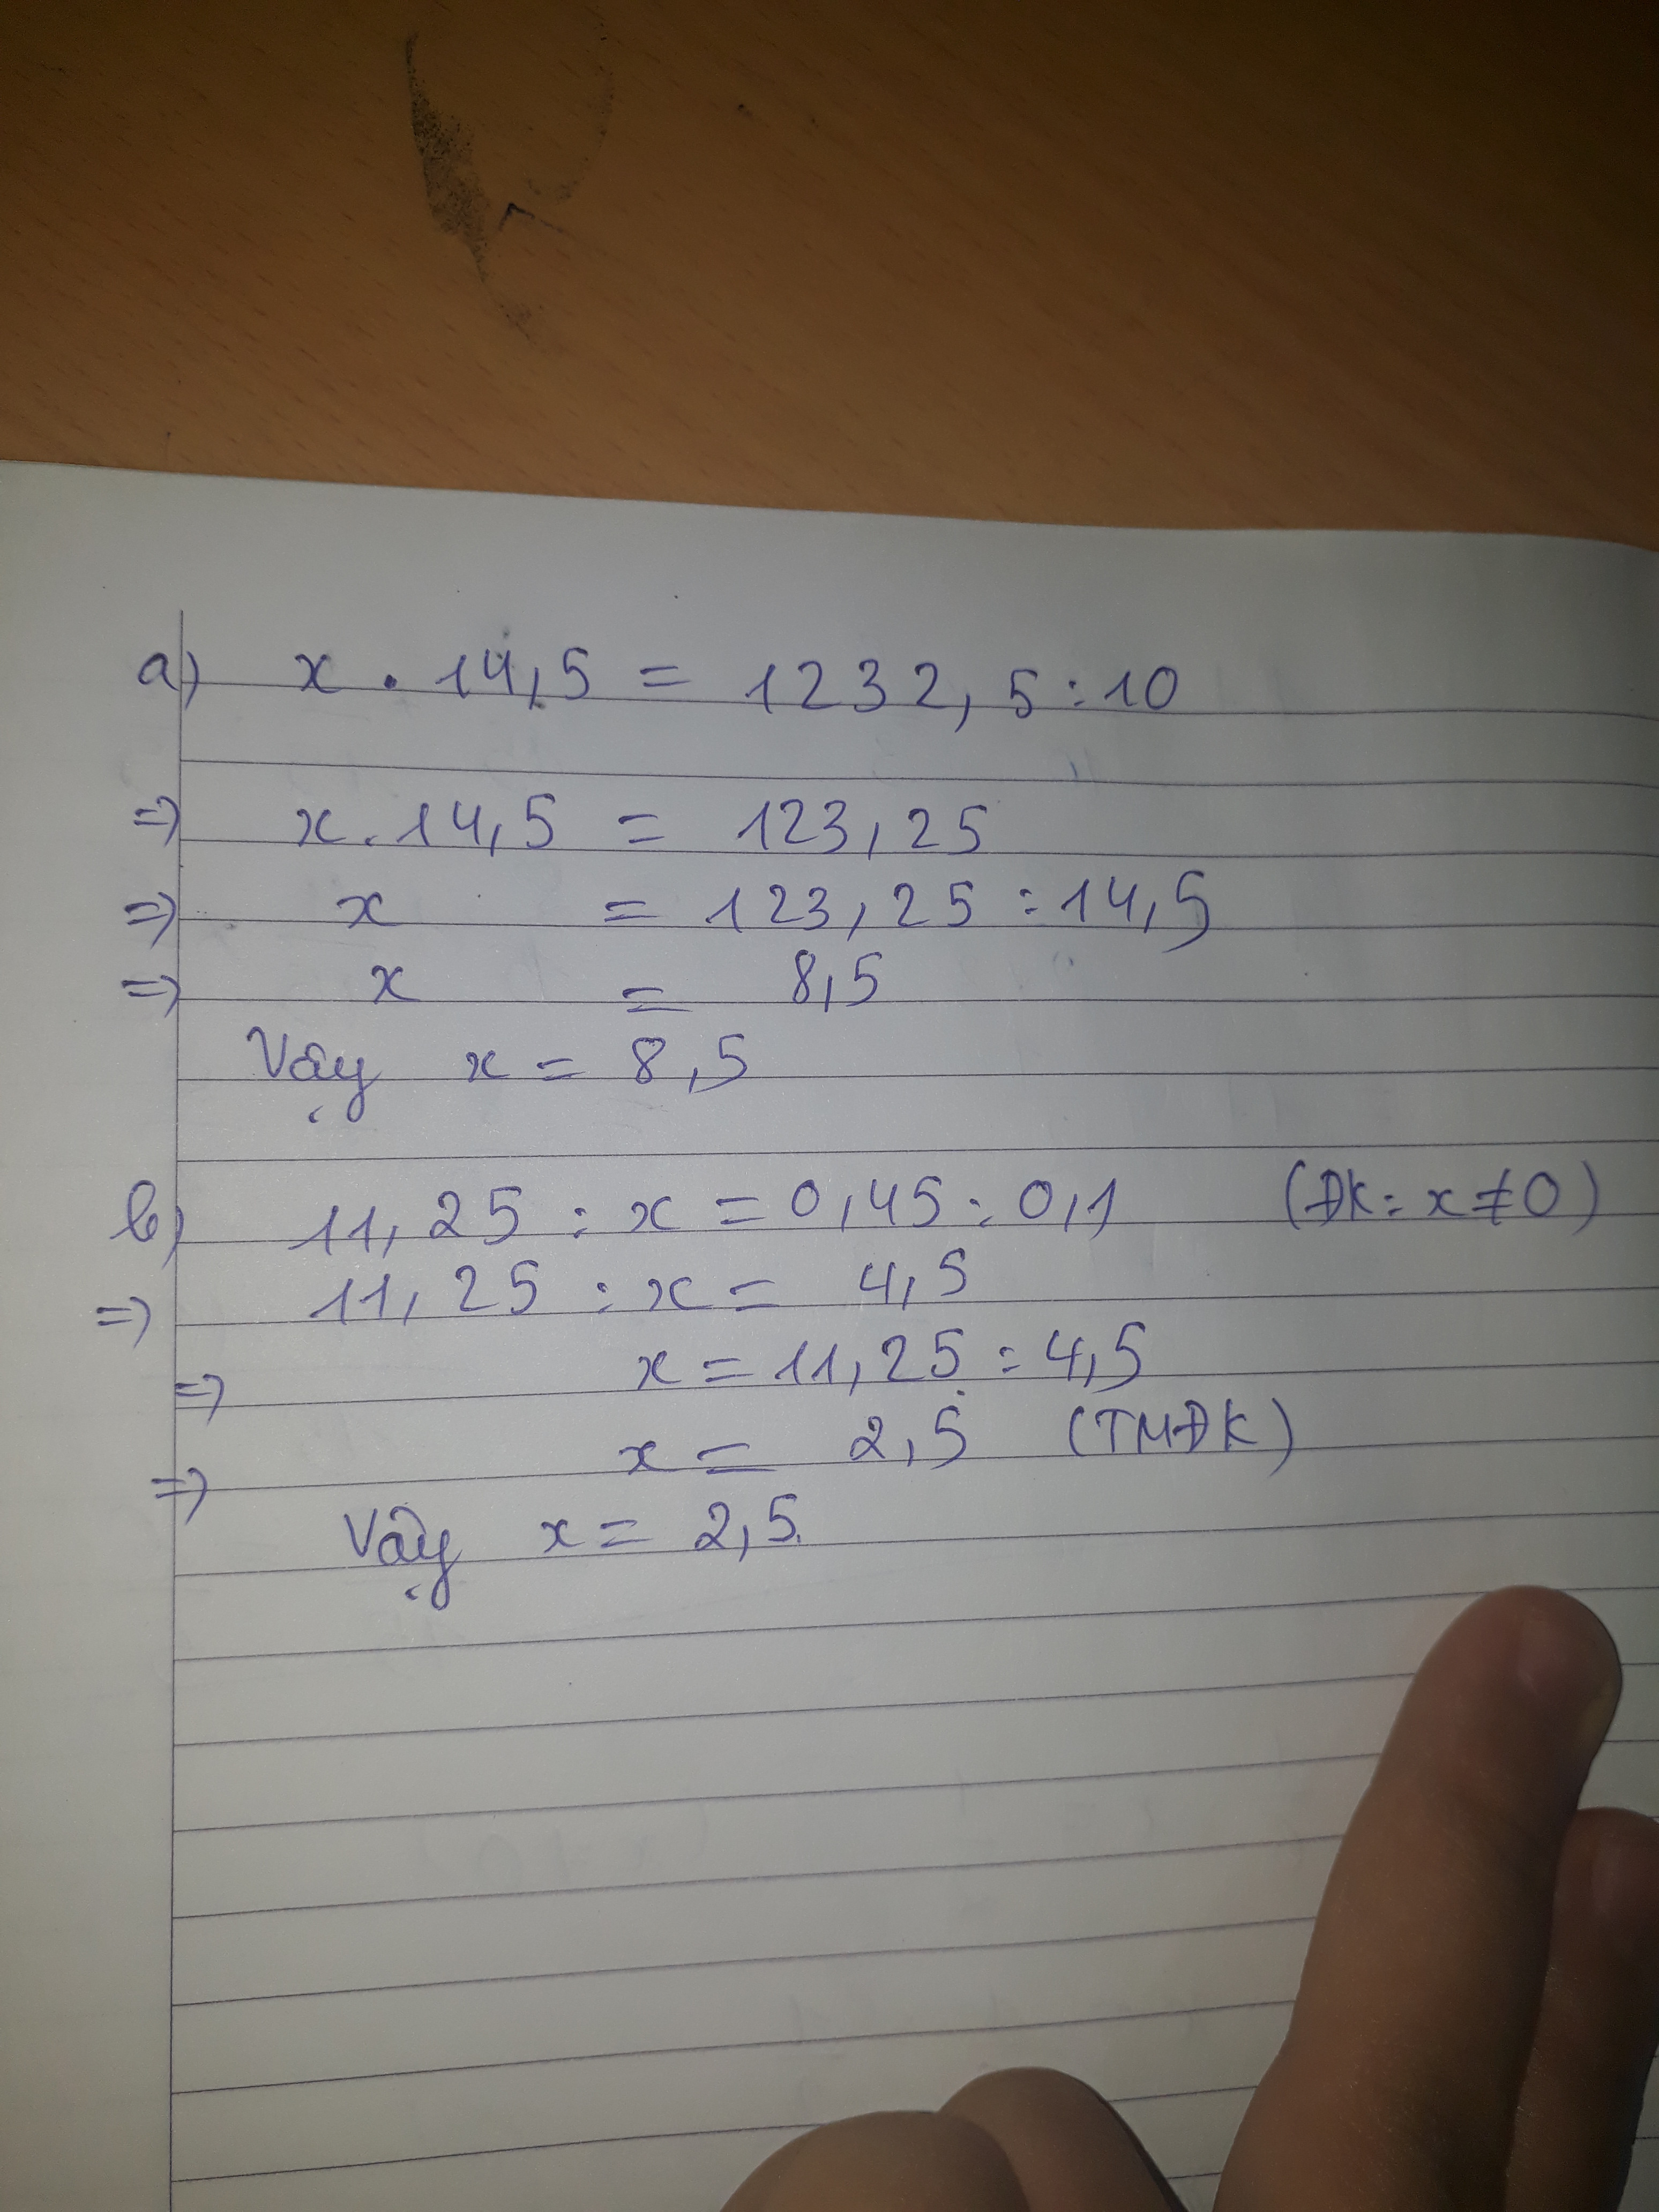 a) x . 14,5 = 1232,5 : 10
=> x . 14,5 = 123,25
=> x = 123,25 : 14,5
=> x = 8,5
Vậy x = 8,5
b) 11,25 : x = 0,45 : 0,1 (ĐK: x ≠ 0)
=> 11,25 : x = 4,5
=> x = 11,25 : 4,5
=> x = 2,5 (TMĐK)
Vậy x = 2,5.